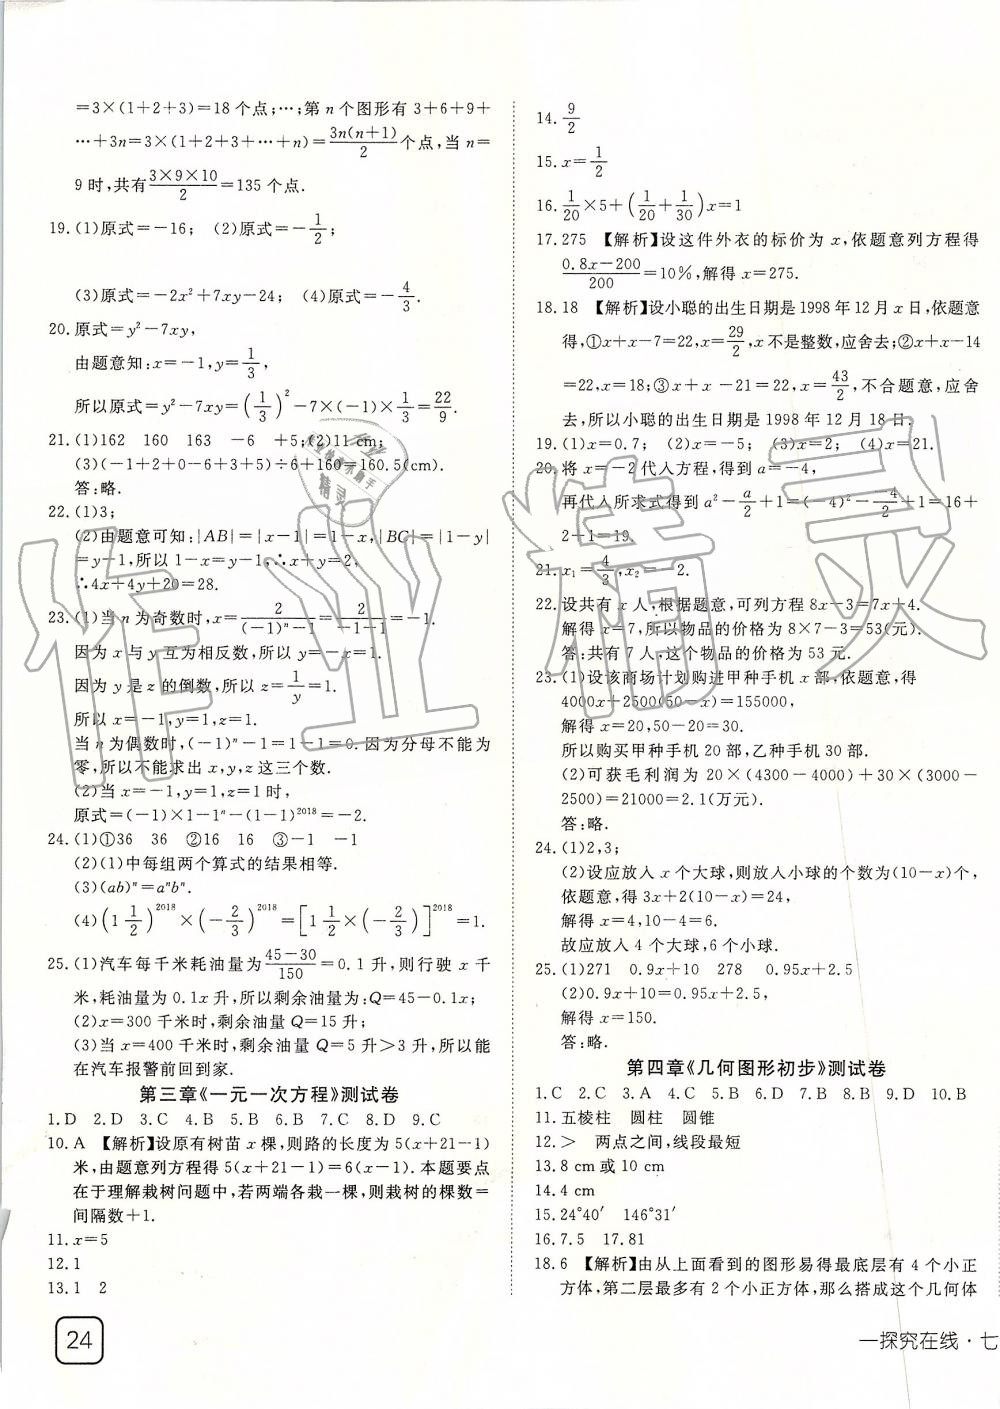 =3×(1+2+3)=18 个点;…;第 n 个图形有 3+6+9+
…+3n=3×(1+2+3+…+n)=3n(n+1)/2 个点,当 n=
9 时,共有 3×9×10/2=135 个点.
19.(1)原式=-16; (2)原式=-1/2;
(3)原式=-2x²+7xy-24; (4)原式=-4/3.
20.原式=y²-7xy,
由题意知:x=-1,y=1/3,
所以原式=y²-7xy=(1/3)²-7×(-1)×1/3=22/9.
21.(1)162 160 163 -6 +5;(2)11 cm;
(3)(-1+2+0-6+3+5)÷6+160=160.5(cm).
答:略.
22.(1)3;
(2)由题意可知:|AB|=|x-1|=1-x,|BC|=|1-y|
=y-1.所以 1-x=y-1,∴x+y=2,
∴4x+4y+20=28.
23.(1)当 n 为奇数时,x=2/((-1)ⁿ-1)=2/(-1-1)=-1.
因为 x 与 y 互为相反数,所以 y=1.
因为 y 是 z 的倒数,所以 z=1/y=1.
所以 x=-1,y=1,z=1.
当 n 为偶数时,(-1)ⁿ-1=1-1=0.因为分母不能为
零,所以不能求出 x,y,z 这三个数.
(2)当 x=-1,y=1,z=1 时,
原式=(-1)×1-1ⁿ-(1-1)²⁰¹⁸=-2.
24.(1)①36 36 ②16 16 ③-1 -1
(2)(1)中每组两个算式的结果相等.
(3)(ab)ⁿ=aⁿbⁿ.
(4)(1 1/2)²⁰¹⁸×(-2/3)²⁰¹⁸=[1 1/2×(-2/3)]²⁰¹⁸=1.
25.(1)汽车每千米耗油量为 45-30/150=0.1 升,则行驶 x 千
米,耗油量为 0.1x 升,所以剩余油量为:Q=45-0.1x;
(2)x=300 千米时,剩余油量 Q=15 升;
(3)当 x=400 千米时,剩余油量 Q=5 升>3 升,所以能
在汽车报警前回到家.
第三章《一元一次方程》测试卷
1.D 2.D 3.C 4.B 5.B 6.D 7.D 8.D 9.C
10.A 【解析】设原有树苗 x 棵,则路的长度为 5(x+21-1)
米,由题意列方程得 5(x+21-1)=6(x-1).本题要点
在于理解栽树问题中,若两端各栽一棵,则栽树的棵数=
间隔数+1.
11.x=5
12.1
13.1 2
24
14.9/2
15.x=1/2
16.1/20×5+(1/20+1/30)x=1
17.275 【解析】设这件外衣的标价为 x,依题意列方程得
0.8x-200/200=10%,解得 x=275.
18.18 【解析】设小聪的出生日期是 1998 年 12 月 x 日,依题意
得,①x+x-7=22,x=29/2,x 不是整数,应舍去;②x+x-14
=22,x=18;③x+x-21=22,x=43/2,不合题意,应舍
去,所以小聪的出生日期是 1998 年 12 月 18 日.
19.(1)x=0.7; (2)x=-5; (3)x=2; (4)x=21.
20.将 x=-2 代入方程,得到 a=-4,
再代入所求式得到 a²-a/2+1=(-4)²--4/2+1=16+
2+1=19.
21.x₁=4/3,x₂=-2.
22.设共有 x 人,根据题意,可列方程 8x-3=7x+4.
解得 x=7,所以物品的价格为 8×7-3=53(元).
答:共有 7 人,这个物品的价格为 53 元.
23.(1)设该商场计划购进甲种手机 x 部,依题意,得
4000x+2500(50-x)=155000,
解得 x=20,50-20=30.
所以购买甲种手机 20 部,乙种手机 30 部.
(2)可获毛利润为 20×(4300-4000)+30×(3000-
2500)=21000=2.1(万元).
答:略.
24.(1)2,3;
(2)设应放入 x 个大球,则放入小球的个数为(10-x)个,
依题意,得 3x+2(10-x)=24,
解得 x=4,10-4=6.
故应放入 4 个大球,6 个小球.
25.(1)271 0.9x+10 278 0.95x+2.5
(2)0.9x+10=0.95x+2.5,
解得 x=150.
第四章《几何图形初步》测试卷
1.C 2.B 3.A 4.C 5.C 6.B 7.C 8.D 9.D 10.B
11.五棱柱 圆柱 圆锥
12.> 两点之间,线段最短
13.8 cm 或 10 cm
14.4 cm
15.24°40′ 146°31′
16.7.5 17.81
18.6 【解析】由从上面看到的图形易得最底层有 4 个小正
方体,第二层最多有 2 个小正方体,那么搭成这个几何体
一探究在线·七
作业精灵